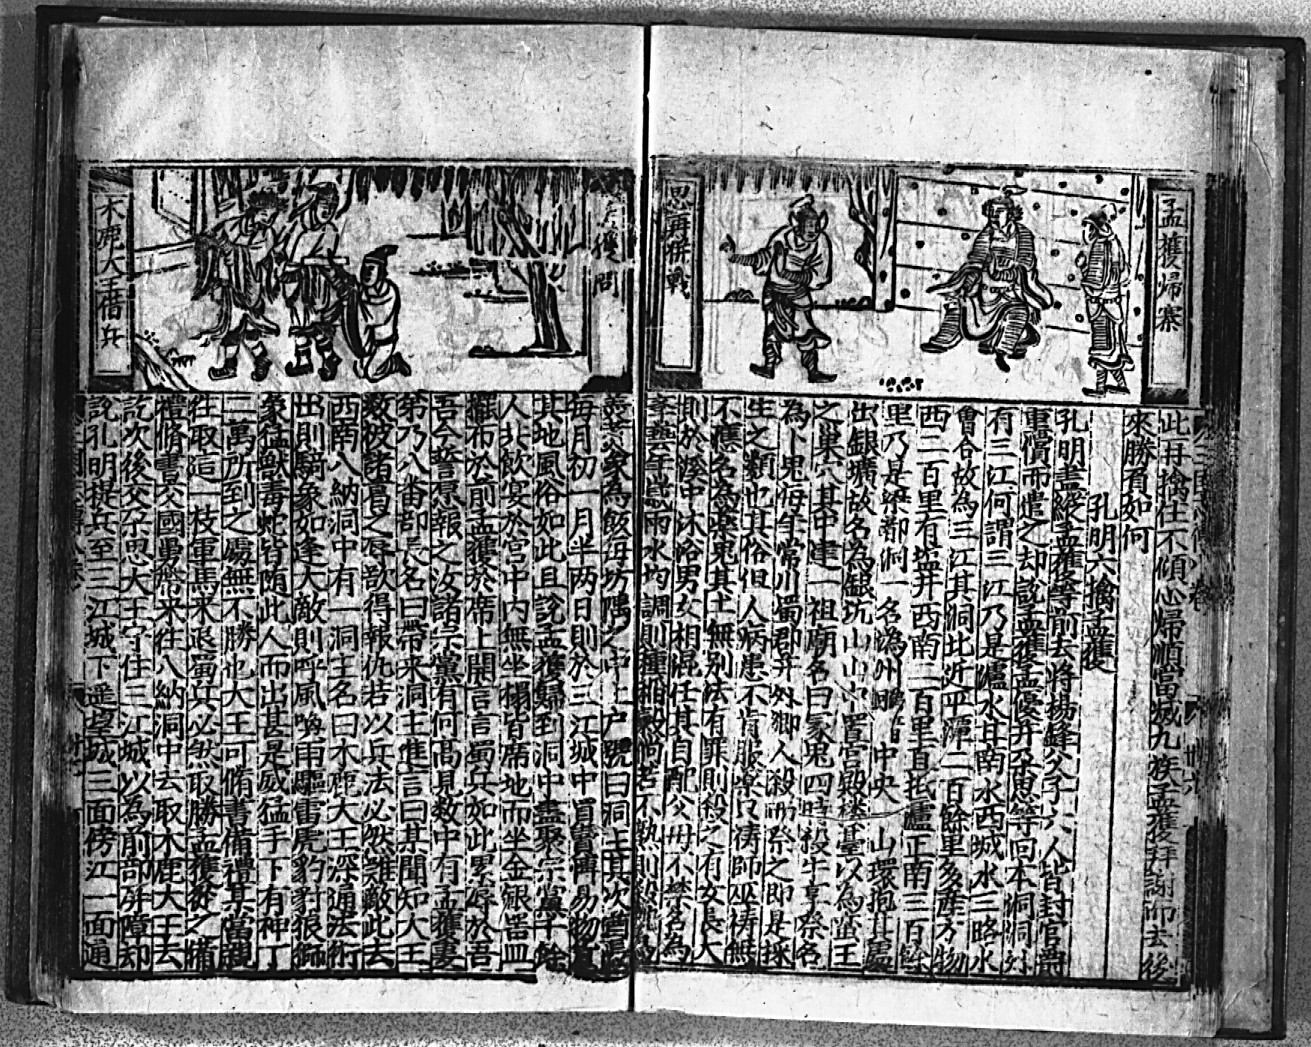 孟獲歸寨
思再擀戰
此再擒住不傾心歸順當滅九族孟獲拜謝而去後
來勝負如何
孔明六擒孟獲
孔明盡縱孟獲等前去將楊鋒父子六人皆封官爵
重償而遣之却說孟獲孟優并朶思等回本洞洞外
有三江何謂三江乃是瀘水其南水西城水三路水
會合故為三江其洞北近平潭二百餘里多產方物
西二百里有塩井西南二百里直抵瀘正南三百餘
里乃是梁都洞一名為州 中央 山環抱其處
出銀壙故名為銀坑山山中置宮殿樓臺以為蛮王
之巢穴其中建一祖廟名曰家鬼四時殺牛享祭名
為卜鬼每年常川蜀郡并外鄉人殺而祭之即是採
生之類也其俗但人病患不肯服藥只禱師巫禱無
不應名為藥鬼其土無别法有罪則殺之有女長大
則於溪中沐浴男女相混任其自配父母不禁名為
孝藝年歲雨水均調則種稻 熟則殺蛇為
木鹿大王借兵
獲問
羮煑象為飯每坊隅之中上戶號曰洞主其次酋長
每月初一月半两日則於三江城中買賣轉易物貨
其地風俗如此且說孟獲歸到洞中盡聚宗黨千餘
人共飲宴於宮中内無坐榻皆席地而坐金銀器皿
擺布於前孟獲於席上開言言蜀兵如此累辱於吾
吾今誓愿報之汝諸宗黨有何高見数中有孟獲妻
第乃八番部長名曰帶來洞主進言曰某聞知大王
数被諸葛之辱欲得報仇若以兵法必然難敵此去
西南八納洞中有一洞王名曰木鹿大王深通法術
出則騎象如逢大敵則呼風喚雨驅雷虎豹豺狼獅
象猛獸毒蛇皆随此人而出甚是威猛手下有神丁
二萬所到之處無不勝也大王可脩書備禮某當親
往取這一枝軍馬来退蜀兵必然取勝孟獲從之備
禮脩書交國舅帶来往八納洞中去取木鹿大王去
訖次後交朶思大王守住三江城以為前部屏障却
說孔明提兵至三江城下遥望城三面傍江一面通